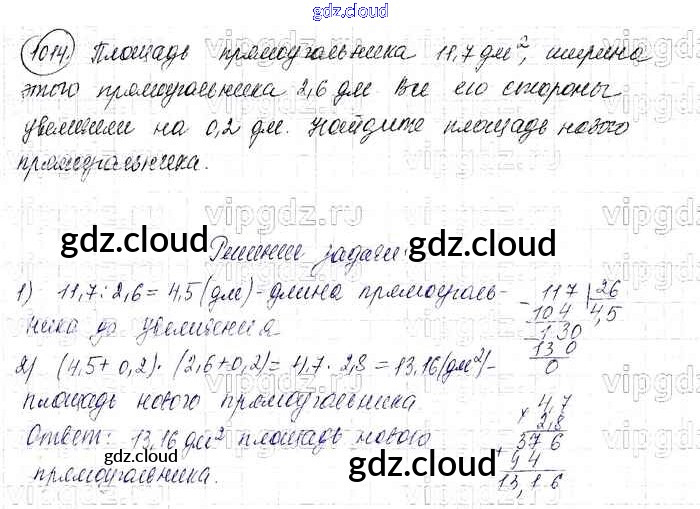 gdz.cloud
1014. Площадь прямоугольника 11,7 дм², ширина
этого прямоугольника 2,6 дм Все его стороны
увеличили на 0,2 дм. Найдите площадь нового
прямоугольника.
vipgdz.ru
gdz.cloud
gdz.cloud
Решение задачи:
1) 11,7 : 2,6 = 4,5 (дм) - длина прямоуголь-
ника до увеличения
117 | 26
- 104 4,5
- 130
130
0
2) (4,5 + 0,2) · (2,6 + 0,2) = 4,7 · 2,8 = 13,16 (дм²) -
площадь нового прямоугольника.
Ответ: 13,16 дм² площадь нового
прямоугольника.
4,7
× 2,8
376
+ 94
13,16
gdz.cloud
gdz.cloud